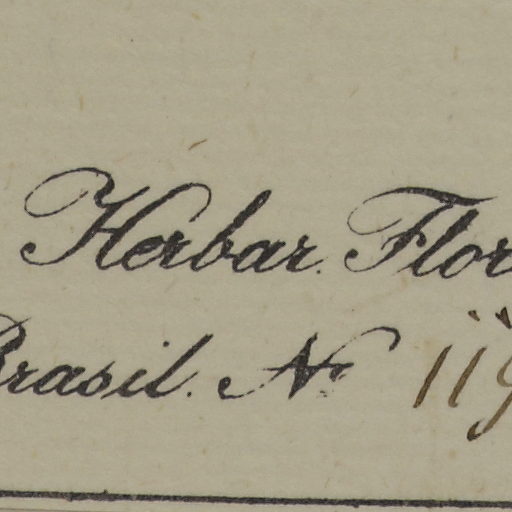 Herbar. Flor
Brasil. No 119